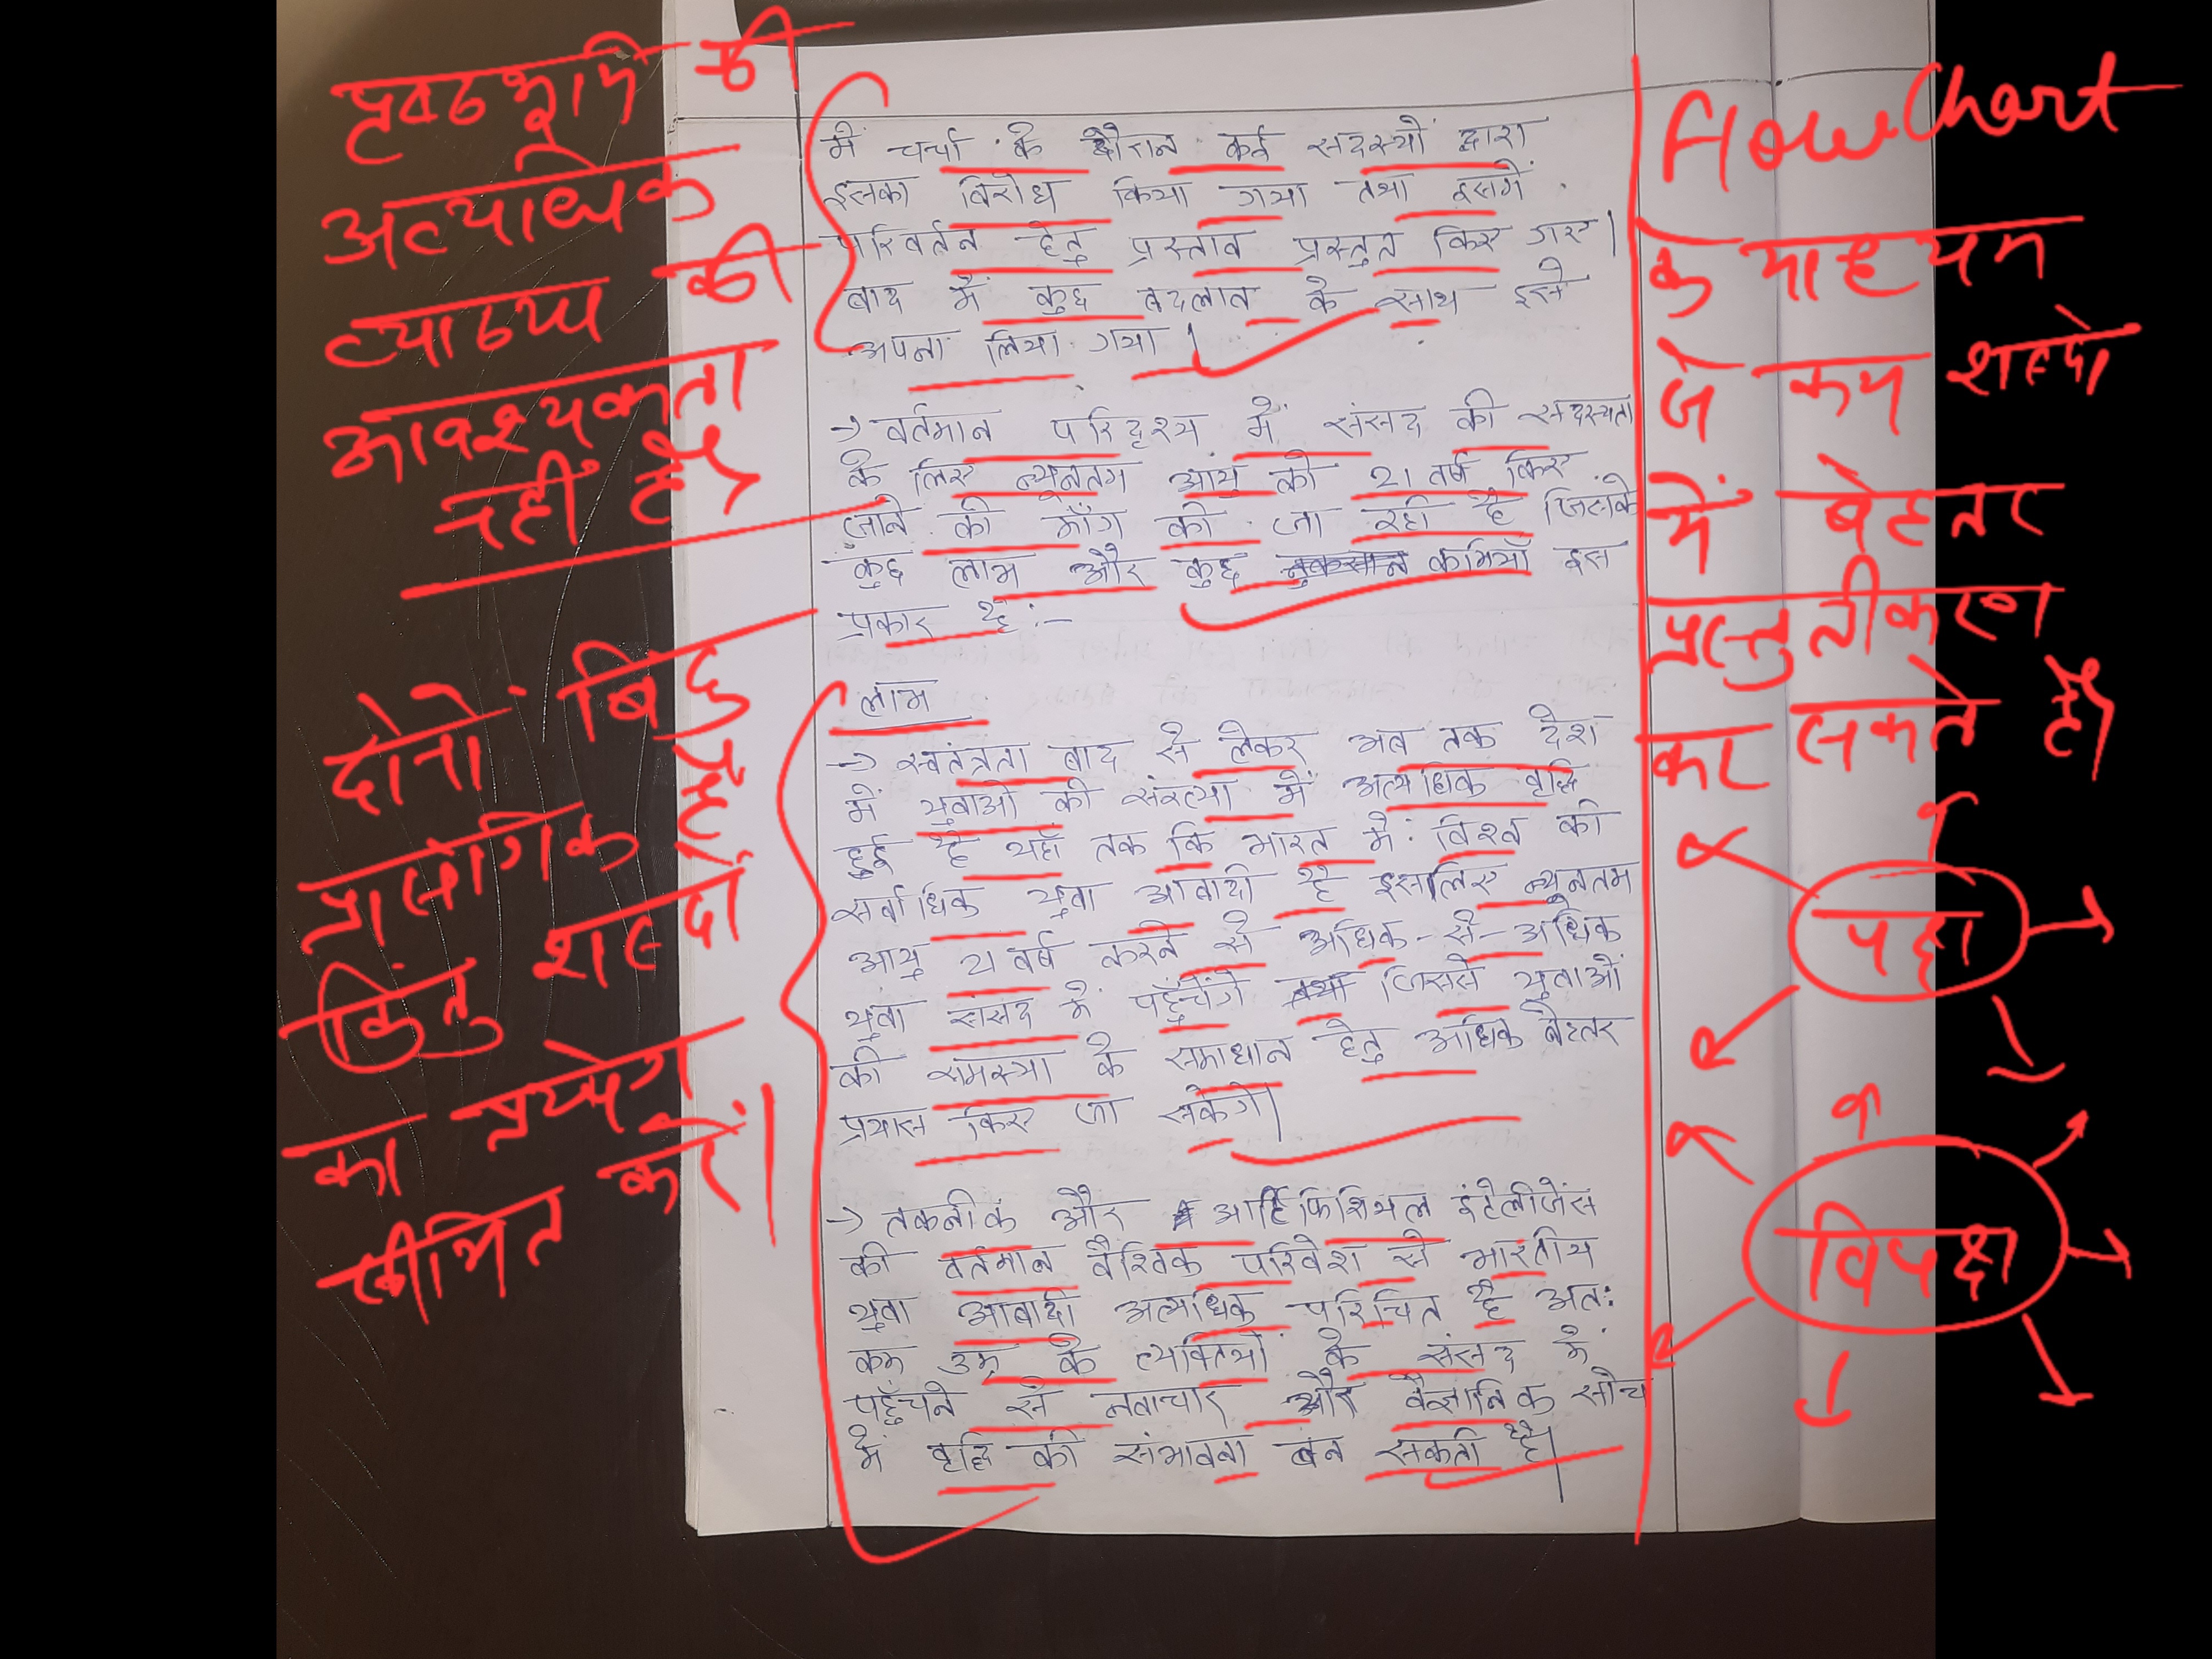 पृष्ठभूमि की
अत्याधिक
व्याख्या की
आवश्यकता
नहीं है।
दोनों बिंदु
प्रासंगिक है
किंतु शब्दों
का प्रयोग
सीमित करें।
में चर्चा के दौरान कई सदस्यों द्वारा
इसका विरोध किया गया तथा इसमें
परिवर्तन हेतु प्रस्ताव प्रस्तुत किए गए।
बाद में कुछ बदलाव के साथ इसे
अपना लिया गया।
→ वर्तमान परिदृश्य में संसद की सदस्यता
के लिए न्यूनतम आयु को 21 वर्ष किए
जाने की माँग की जा रही है जिसके
कुछ लाभ और कुछ नुकसान कमियाँ इस
प्रकार है :-
लाभ
→ स्वतंत्रता बाद से लेकर अब तक देश
में युवाओं की संख्या में अत्यधिक वृद्धि
हुई है यहाँ तक कि भारत में विश्व की
सर्वाधिक युवा आबादी है इसलिए न्यूनतम
आयु 21 वर्ष करने से अधिक-से-अधिक
युवा संसद में पहुँचेंगे तथा जिससे युवाओं
की समस्या के समाधान हेतु अधिक बेहतर
प्रयास किए जा सकेंगे।
→ तकनीक और आर्टिफिशियल इंटेलीजेंस
की वर्तमान वैश्विक परिवेश से भारतीय
युवा आबादी अत्यधिक परिचित है अतः
कम उम्र के व्यक्तियों के संसद में
पहुँचने से नवाचार और वैज्ञानिक सोच
में वृद्धि की संभावना बन सकती है।
Flow Chart
के माध्यम
से कम शब्दों
में बेहतर
प्रस्तुतीकरण
कर सकते हैं।
पक्ष
विपक्ष